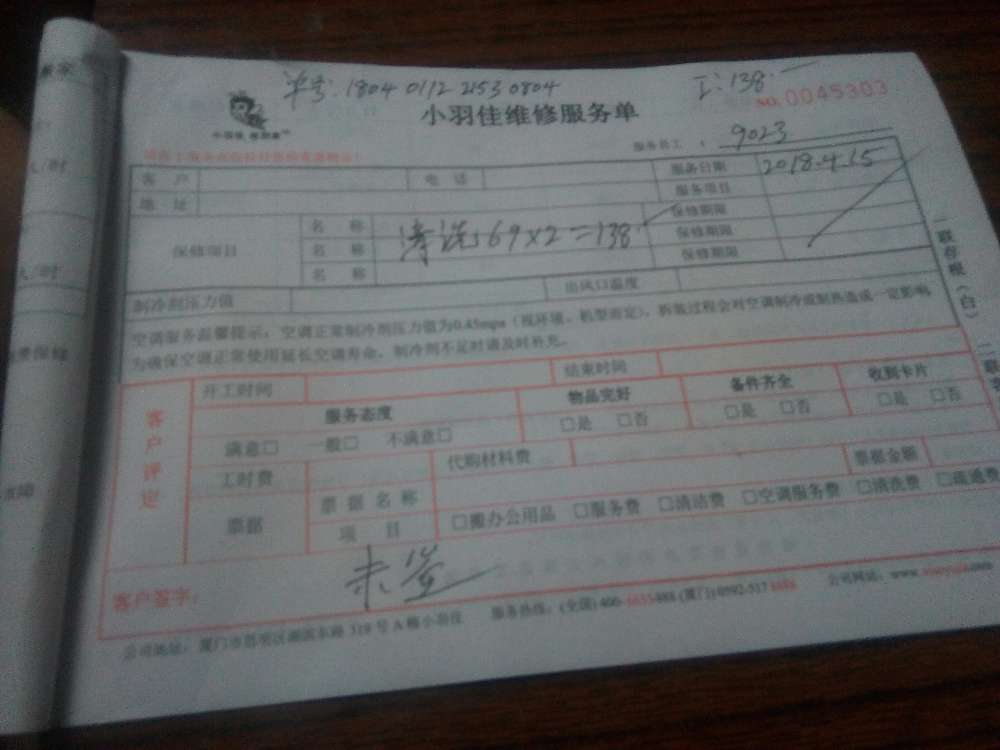 单号：1804 0112 2153 0804
工：138.—
NO. 0045303
小羽佳维修服务单
服务员工：9023
客 户 电 话 服务日期 2018.4.15
地 址 服务项目
保修项目 名 称 清洗：69×2=138. 保修期限
名 称 保修期限
名 称 保修期限
制冷剂压力值 出风口温度
空调服务温馨提示：空调正常制冷剂压力值为0.45mpa（视环境、机型而定），拆装过程会对空调制冷或制热造成一定影响
为确保空调正常使用延长空调寿命，制冷剂不足时请及时补充。
客户评定
开工时间 结束时间
服务态度 物品完好 备件齐全 收到卡片
满意□ 一般□ 不满意□ □是 □否 □是 □否 □是 □否
工时费 代购材料费 票据金额
票据 票据名称
项 目 □搬办公用品 □服务费 □清洁费 □空调服务费 □清洗费 □疏通费
客户签字： 未签
服务热线：（全国）400- （厦门）0592-517
公司网站：www.xiaoyujia.com
公司地址：厦门市思明区湖滨东路319号A幢小羽佳
一联存根（白）